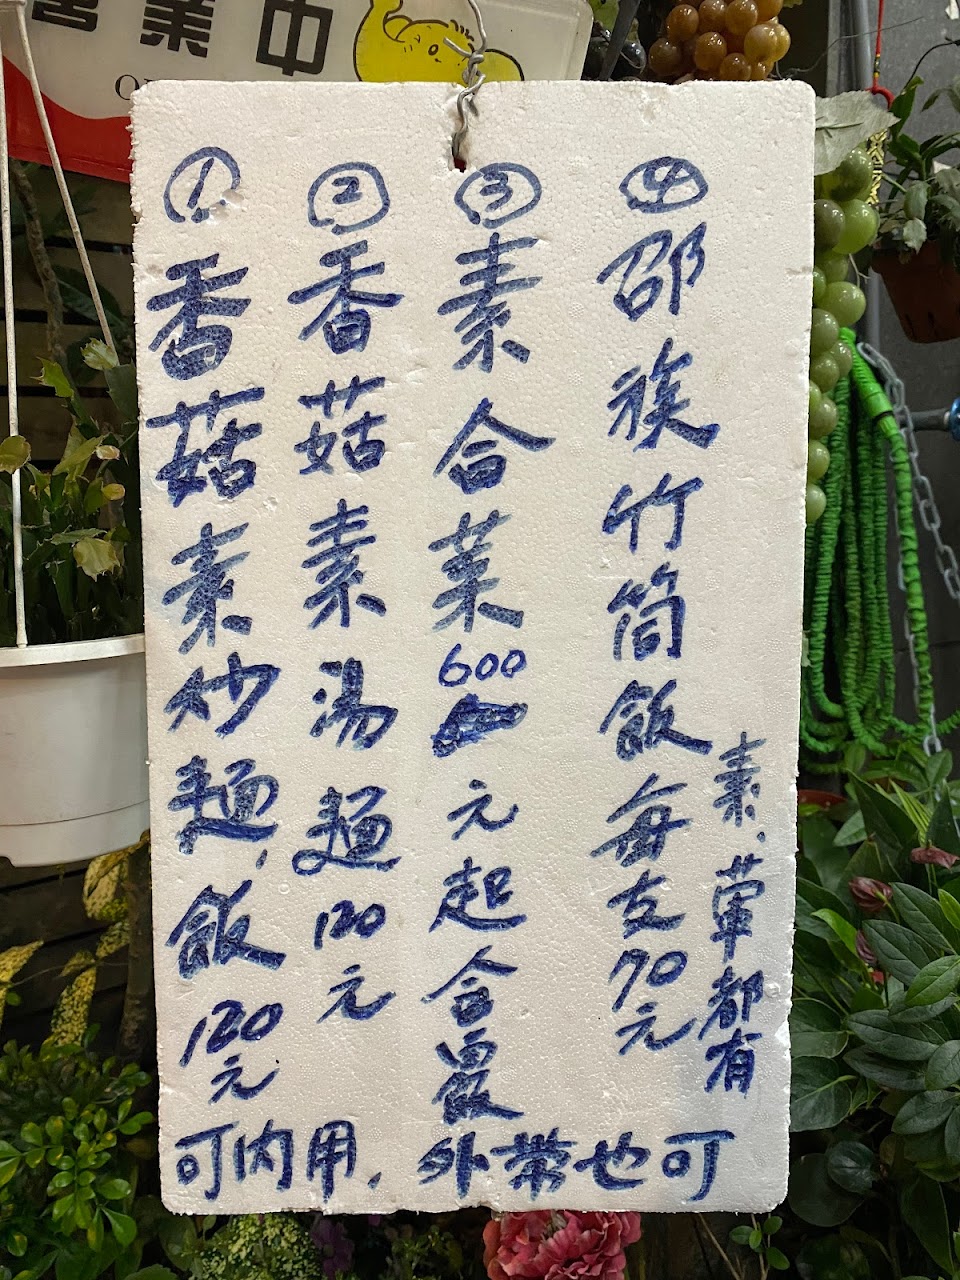 營業中
①香菇素炒麵,飯120元
②香菇素湯麵120元
③素合菜600元起合菜飯
④邵族竹筒飯每支70元
素、葷都有
可內用,外帶也可